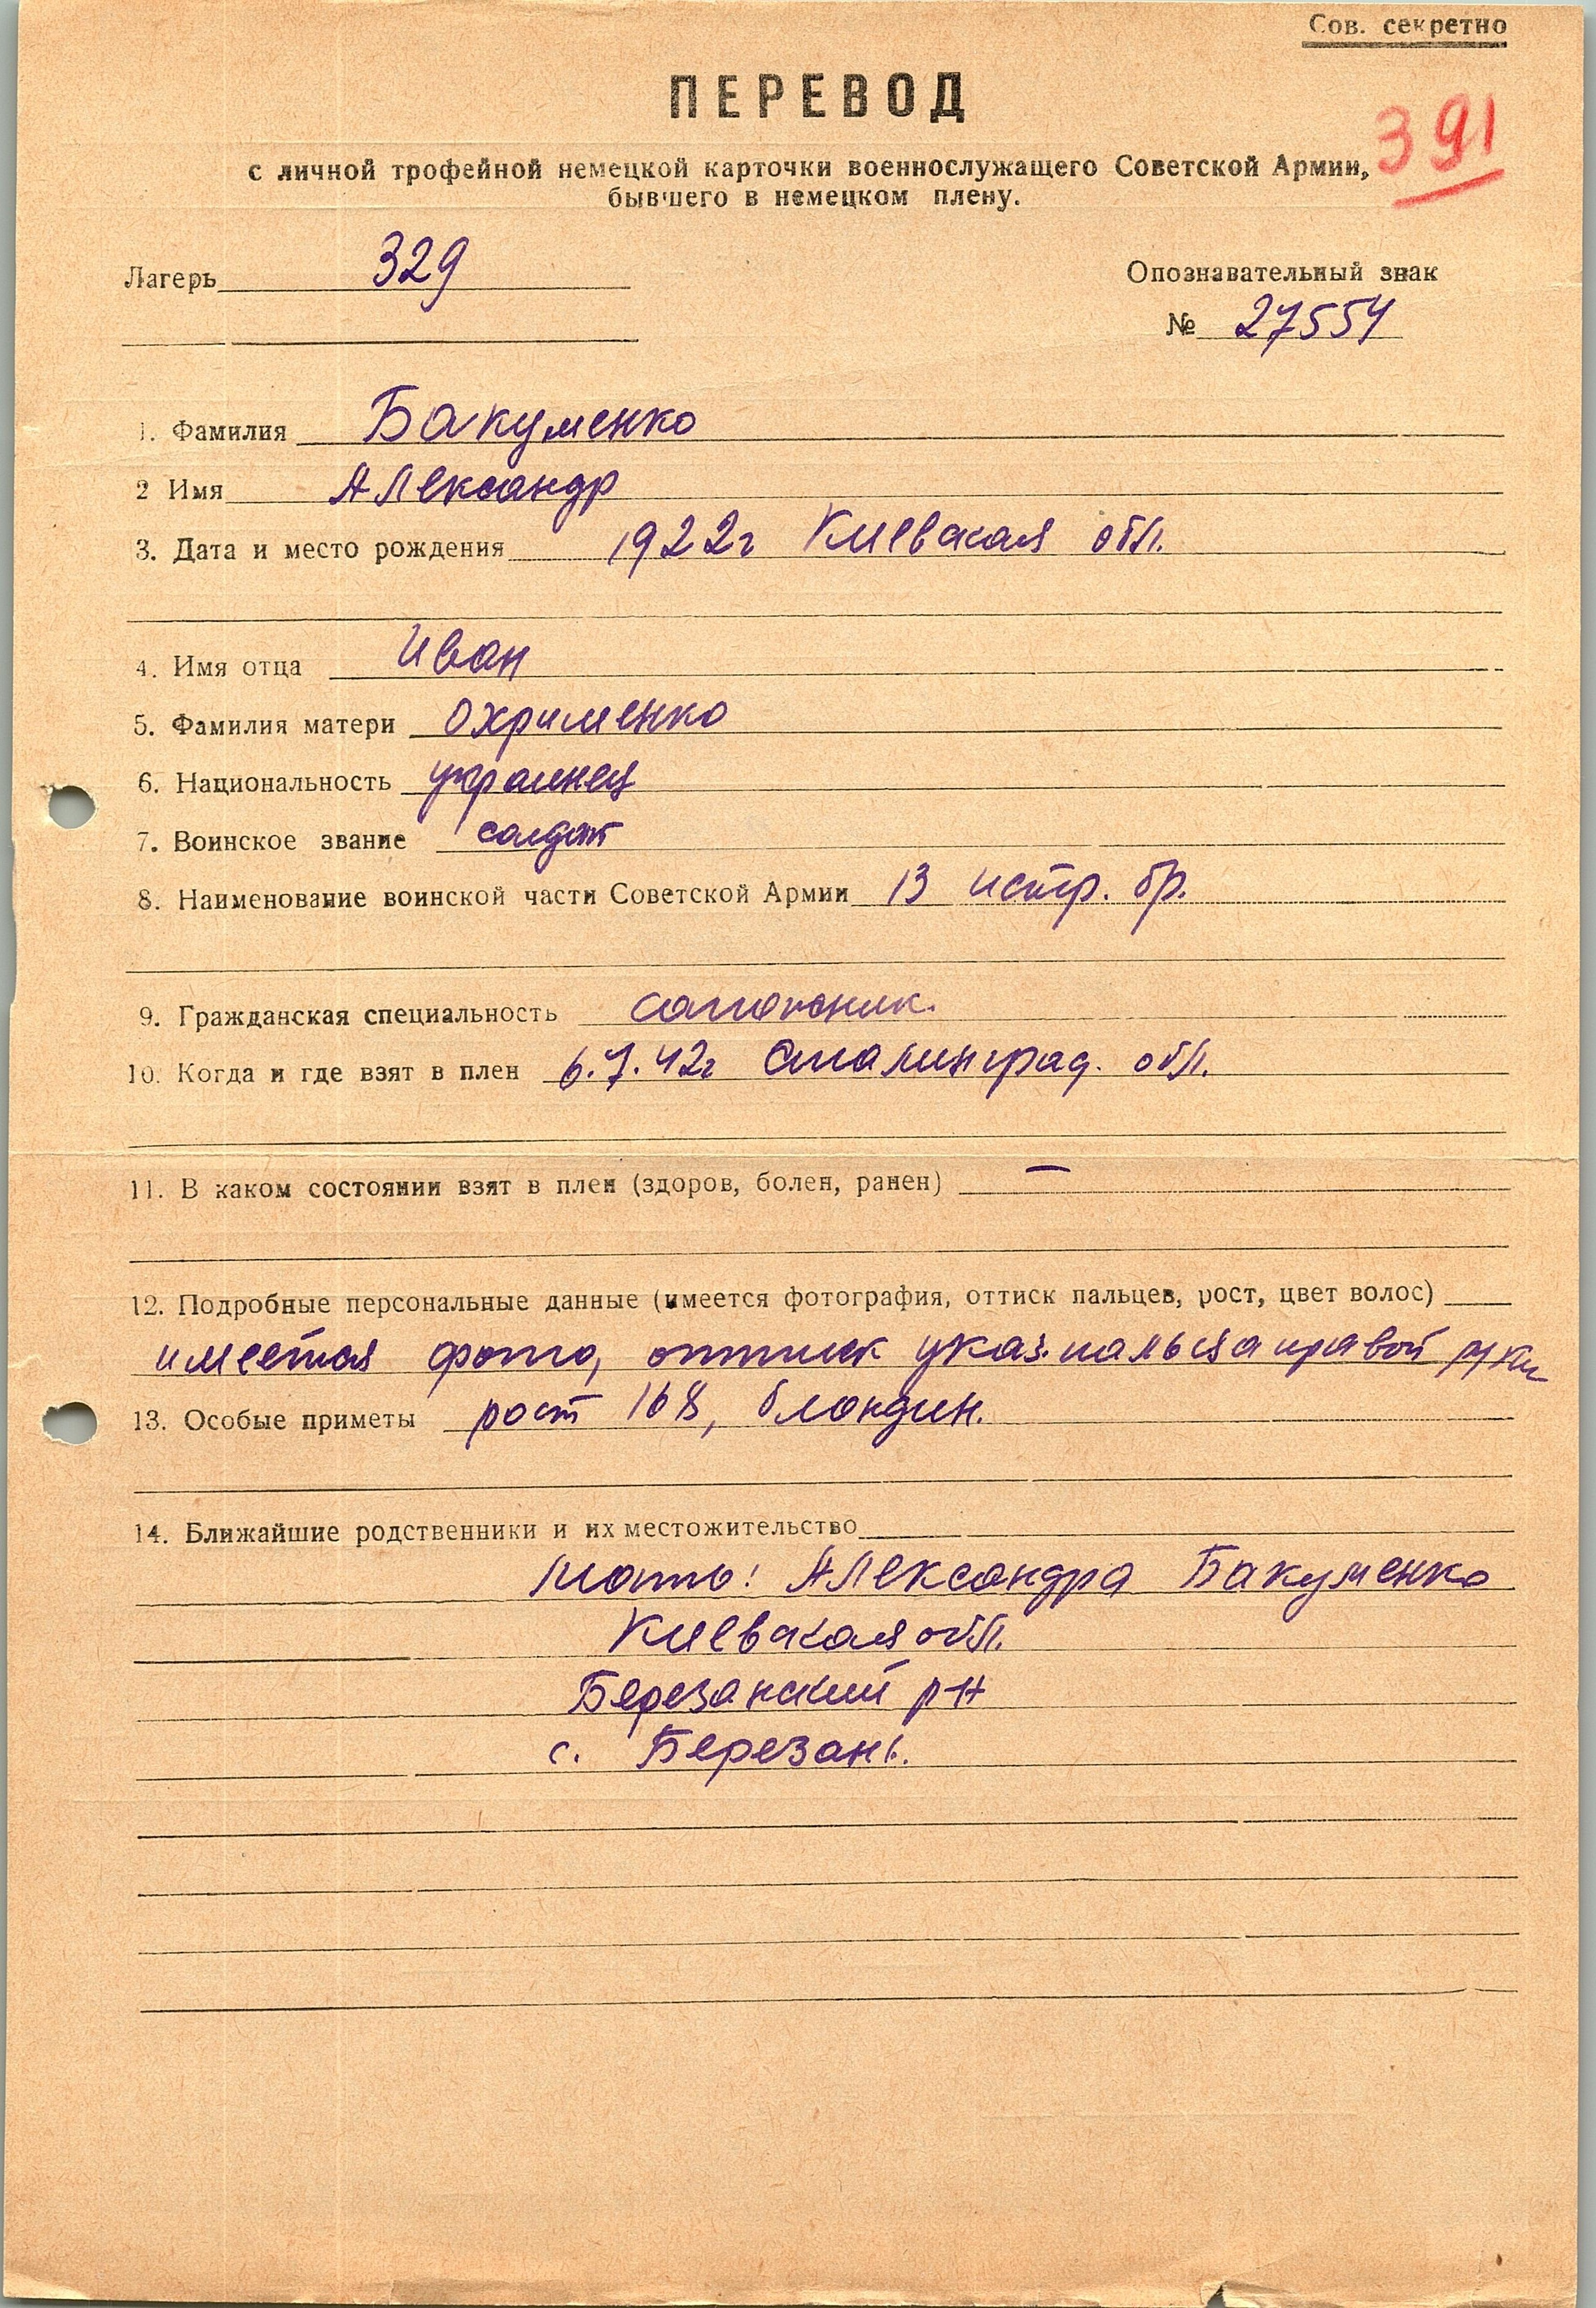 Сов. секретно
ПЕРЕВОД
391
с личной трофейной немецкой карточки военнослужащего Советской Армии,
бывшего в немецком плену.
Лагерь 329
Опознавательный знак
№ 27554
1. Фамилия Бакуменко
2 Имя Александр
3. Дата и место рождения 1922г Киевская обл.
4. Имя отца Иван
5. Фамилия матери Охрименко
6. Национальность украинец
7. Воинское звание солдат
8. Наименование воинской части Советской Армии 13 истр. бр.
9. Гражданская специальность сапожник.
10. Когда и где взят в плен 6.7.42г Сталинград. обл.
11. В каком состоянии взят в плен (здоров, болен, ранен) —
12. Подробные персональные данные (имеется фотография, оттиск пальцев, рост, цвет волос)
имеется фото, оттиск указ. пальца правой руки
13. Особые приметы рост 168, блондин.
14. Ближайшие родственники и их местожительство
Мать: Александра Бакуменко
Киевская обл.
Березанский р-н
с. Березань.